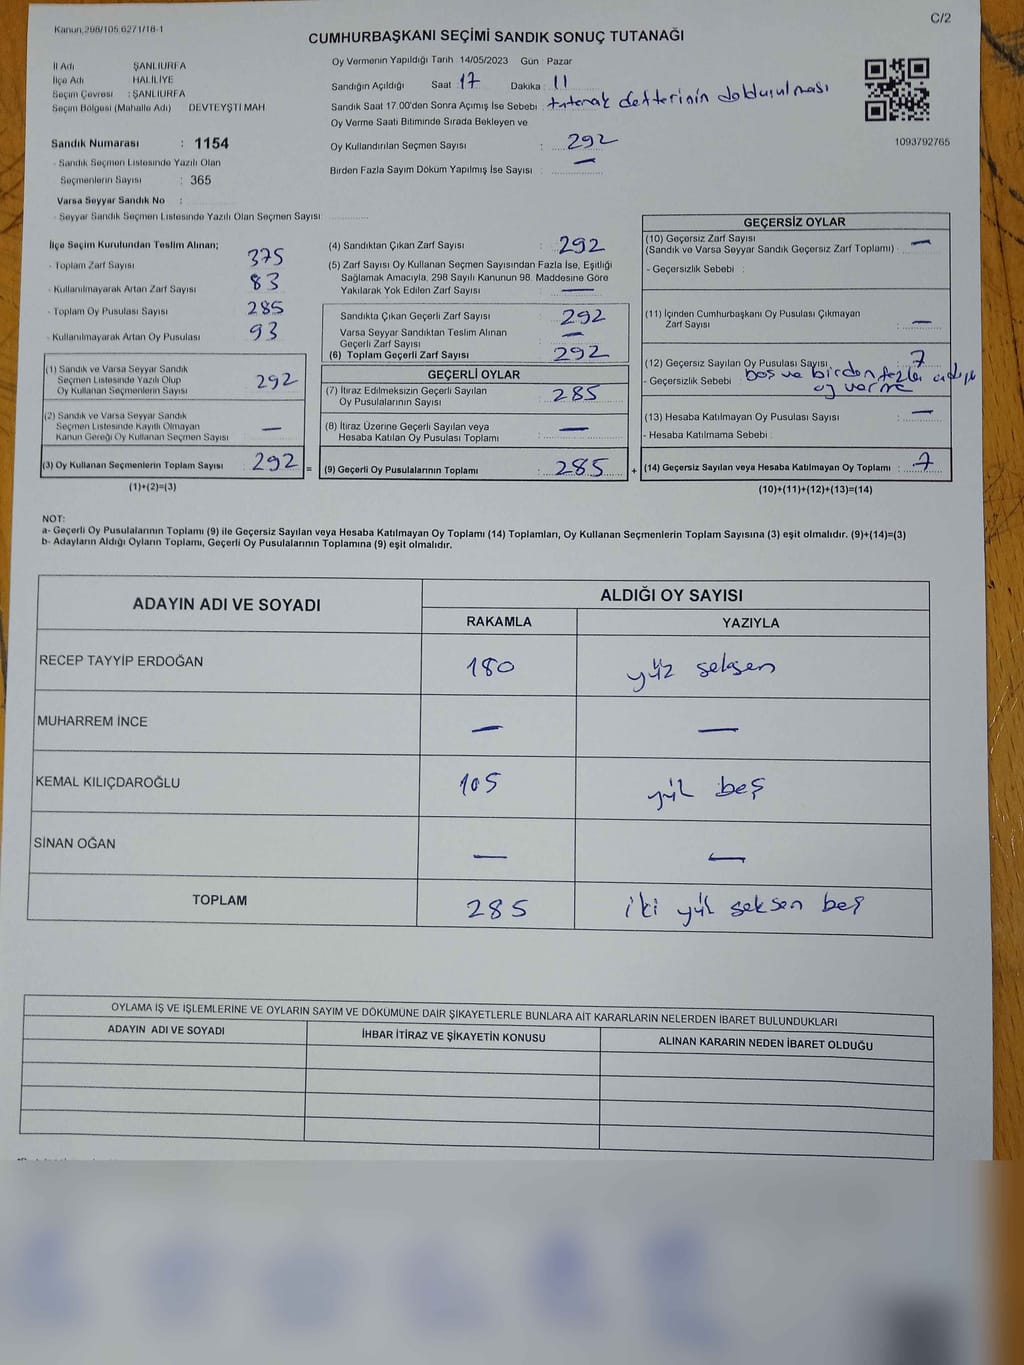 Kanun,298/105,6271/18-1
C/2
CUMHURBAŞKANI SEÇİMİ SANDIK SONUÇ TUTANAĞI
İl Adı ŞANLIURFA
İlçe Adı HALİLİYE
Seçim Çevresi : ŞANLIURFA
Seçim Bölgesi (Mahalle Adı) DEVTEYŞTİ MAH
Sandık Numarası : 1154
- Sandık Seçmen Listesinde Yazılı Olan
Seçmenlerin Sayısı : 365
Varsa Seyyar Sandık No :
- Seyyar Sandık Seçmen Listesinde Yazılı Olan Seçmen Sayısı:
Oy Vermenin Yapıldığı Tarih 14/05/2023 Gün Pazar
Sandığın Açıldığı Saat 17 Dakika 11
Sandık Saat 17.00'den Sonra Açımış İse Sebebi : tutanak defterinin doldurulması
Oy Verme Saati Bitiminde Sırada Bekleyen ve
Oy Kullandırılan Seçmen Sayısı : 292
Birden Fazla Sayım Döküm Yapılmış İse Sayısı : —
1093792765
İlçe Seçim Kurulundan Teslim Alınan;
- Toplam Zarf Sayısı 375
- Kullanılmayarak Artan Zarf Sayısı 83
- Toplam Oy Pusulası Sayısı 285
- Kullanılmayarak Artan Oy Pusulası 93
(1) Sandık ve Varsa Seyyar Sandık
Seçmen Listesinde Yazılı Olup
Oy Kullanan Seçmenlerin Sayısı 292
(2) Sandık ve Varsa Seyyar Sandık
Seçmen Listesinde Kayıtlı Olmayan
Kanun Gereği Oy Kullanan Seçmen Sayısı —
(3) Oy Kullanan Seçmenlerin Toplam Sayısı 292 =
(1)+(2)=(3)
(4) Sandıktan Çıkan Zarf Sayısı : 292
(5) Zarf Sayısı Oy Kullanan Seçmen Sayısından Fazla İse, Eşitliği
Sağlamak Amacıyla, 298 Sayılı Kanunun 98. Maddesine Göre
Yakılarak Yok Edilen Zarf Sayısı —
Sandıkta Çıkan Geçerli Zarf Sayısı : 292
Varsa Seyyar Sandıktan Teslim Alınan
Geçerli Zarf Sayısı : —
(6) Toplam Geçerli Zarf Sayısı : 292
GEÇERLİ OYLAR
(7) İtiraz Edilmeksizin Geçerli Sayılan
Oy Pusulalarının Sayısı : 285
(8) İtiraz Üzerine Geçerli Sayılan veya
Hesaba Katılan Oy Pusulası Toplamı : —
(9) Geçerli Oy Pusulalarının Toplamı : 285 +
GEÇERSİZ OYLAR
(10) Geçersiz Zarf Sayısı
(Sandık ve Varsa Seyyar Sandık Geçersiz Zarf Toplamı) : —
- Geçersizlik Sebebi :
(11) İçinden Cumhurbaşkanı Oy Pusulası Çıkmayan
Zarf Sayısı : —
(12) Geçersiz Sayılan Oy Pusulası Sayısı : 7
- Geçersizlik Sebebi : boş ve birden fazla
oy verme
(13) Hesaba Katılmayan Oy Pusulası Sayısı : —
- Hesaba Katılmama Sebebi :
(14) Geçersiz Sayılan veya Hesaba Katılmayan Oy Toplamı : 7
(10)+(11)+(12)+(13)=(14)
NOT:
a- Geçerli Oy Pusulalarının Toplamı (9) ile Geçersiz Sayılan veya Hesaba Katılmayan Oy Toplamı (14) Toplamları, Oy Kullanan Seçmenlerin Toplam Sayısına (3) eşit olmalıdır. (9)+(14)=(3)
b- Adayların Aldığı Oyların Toplamı, Geçerli Oy Pusulalarının Toplamına (9) eşit olmalıdır.
ADAYIN ADI VE SOYADI ALDIĞI OY SAYISI
RAKAMLA YAZIYLA
RECEP TAYYİP ERDOĞAN 180 yüz seksen
MUHARREM İNCE — —
KEMAL KILIÇDAROĞLU 105 yüz beş
SİNAN OĞAN — —
TOPLAM 285 iki yüz seksen beş
OYLAMA İŞ VE İŞLEMLERİNE VE OYLARIN SAYIM VE DÖKÜMÜNE DAİR ŞİKAYETLERLE BUNLARA AİT KARARLARIN NELERDEN İBARET BULUNDUKLARI
ADAYIN ADI VE SOYADI İHBAR İTİRAZ VE ŞİKAYETİN KONUSU ALINAN KARARIN NEDEN İBARET OLDUĞU